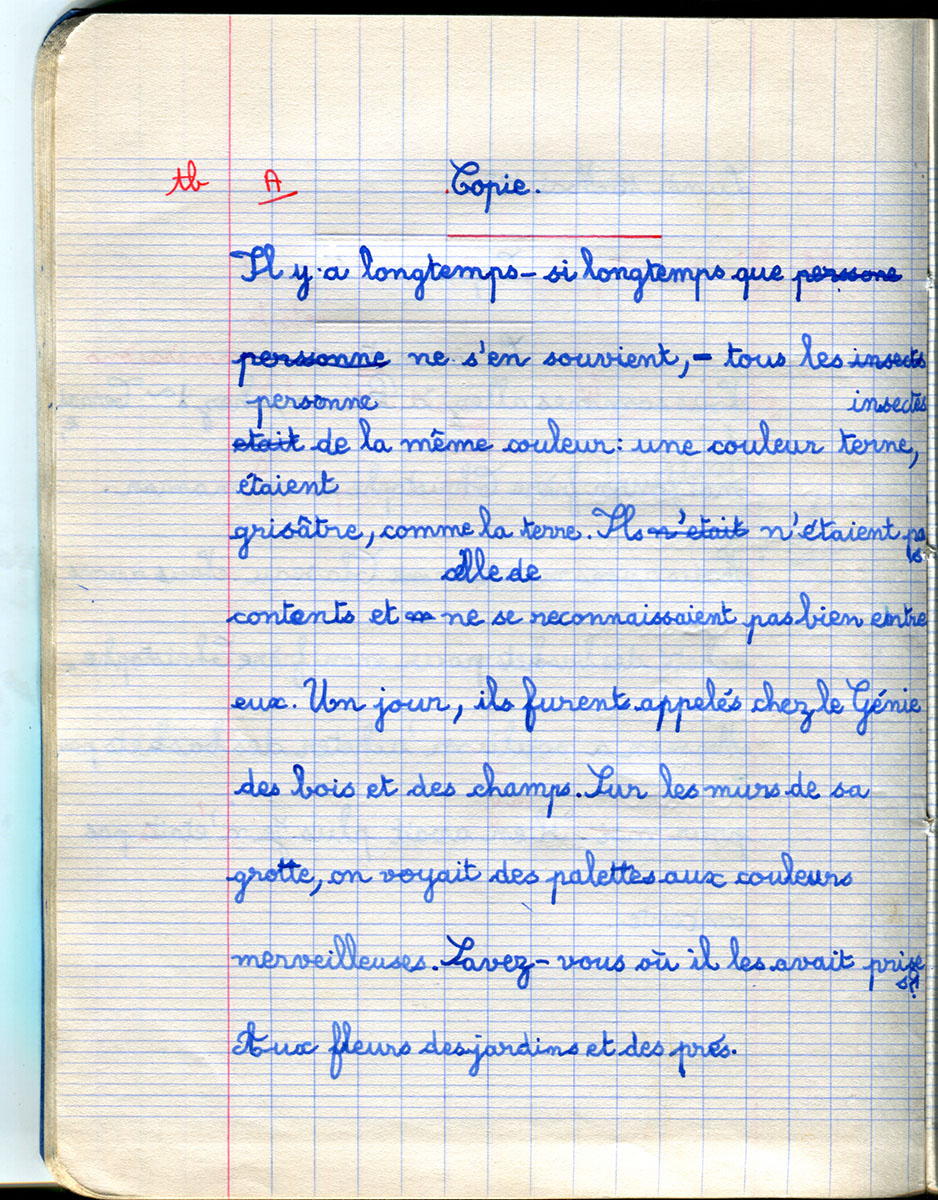 tb A Copie.
Il y a longtemps - si longtemps que persone
personne ne s'en souvient, - tous les insects
personne insectes
etait de la même couleur : une couleur terne,
étaient
grisâtre, comme la terre. Ils n'etait n'étaient pa
s
de
contents et ne se reconnaissaient pas bien entre
eux. Un jour, ils furent appelés chez le Génie
des bois et des champs. Sur les murs de sa
grotte, on voyait des palettes aux couleurs
merveilleuses. Savez-vous où il les avait prise
s?
Aux fleurs des jardins et des prés.